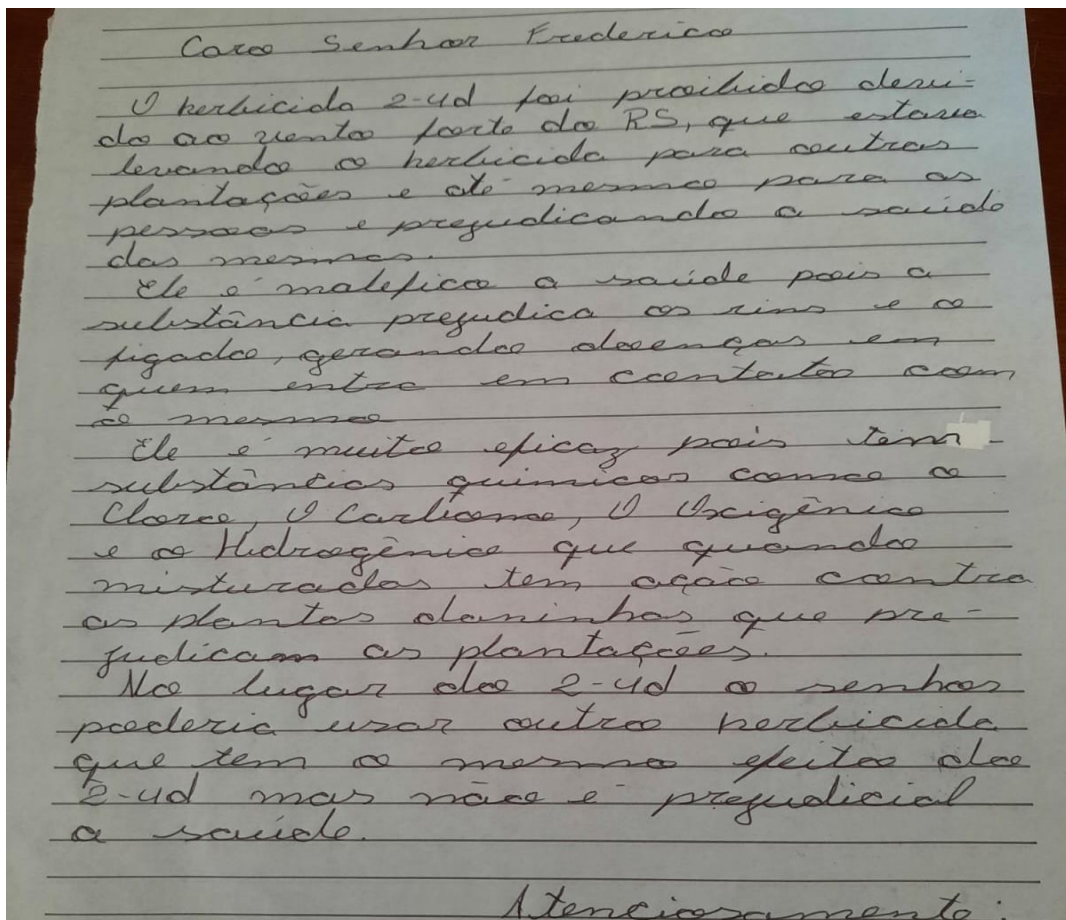 Caro Senhor Frederico
O herbicida 2-4d foi proibido devi-
do ao vento forte do RS, que estava
levando o herbicida para outras
plantações e até mesmo para as
pessoas e prejudicando a saúde
das mesmas.
Ele é malefico a saúde pois a
substância prejudica os rins e o
figado, gerando doenças em
quem entra em contato com
o mesmo
Ele é muito eficaz pois tem
substâncias quimicas como o
Cloro, O Carbono, O Oxigênio
e o Hidrogênio que quando
misturados tem ação contra
as plantas daninhas que pre-
judicam as plantações.
No lugar do 2-4d o senhor
poderia usar outro herbicida
que tem o mesmo efeito do
2-4d mas não é prejudicial
a saúde.
Atenciosamente: